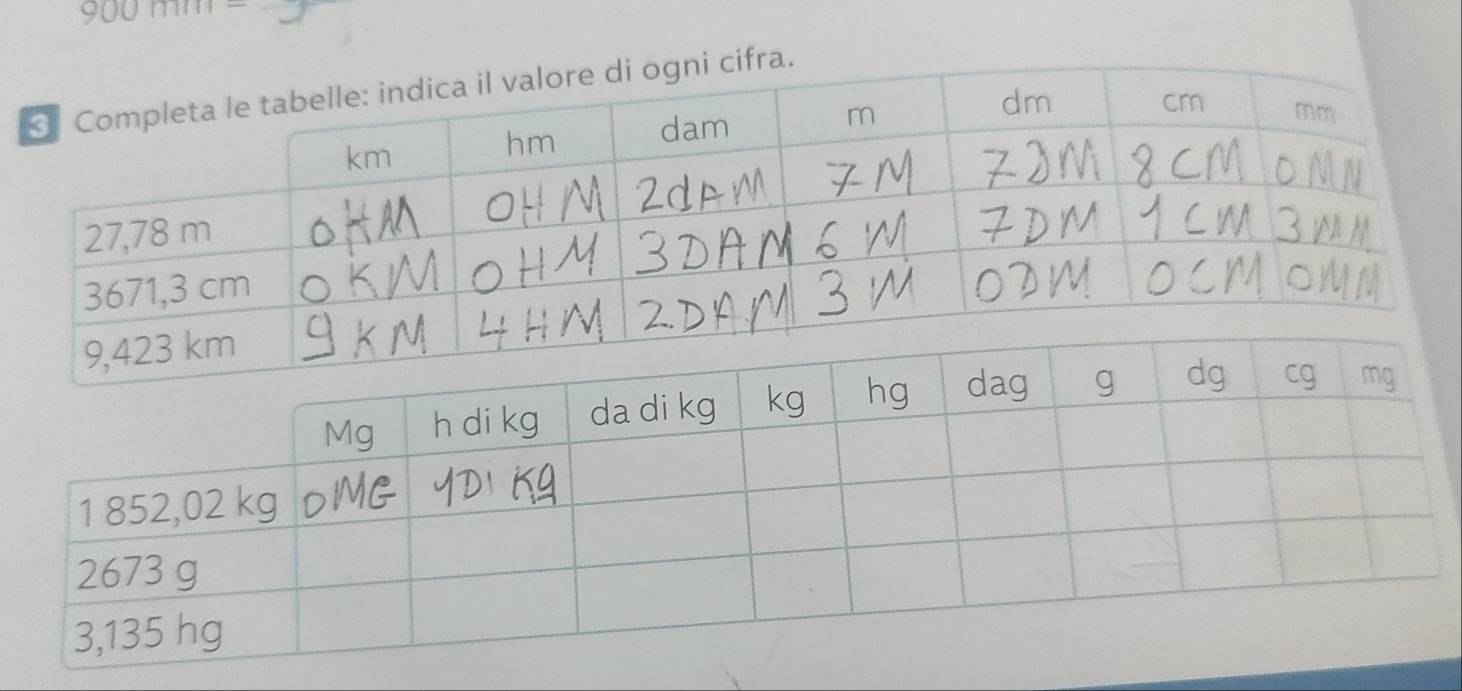 900 mm =
3 Completa le tabelle: indica il valore di ogni cifra.
km hm dam m dm cm mm
27,78 m 0HM 0HM 2dAM 7M 7DM 8CM 0MM
3671,3 cm 0KM 0HM 3DAM 6M 7DM 1CM 3MM
9,423 km 9KM 4HM 2DAM 3M 0DM 0CM 0MM
Mg h di kg da di kg kg hg dag g dg cg mg
1 852,02 kg 0MG 1DI Kg
2673 g
3,135 hg